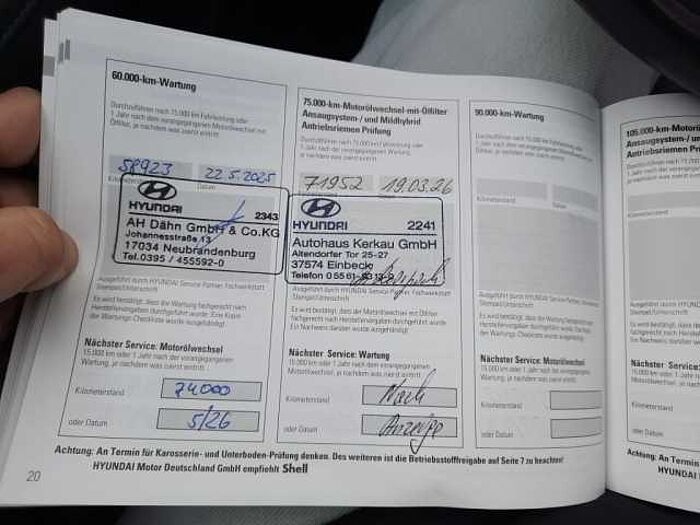 60.000-km-Wartung
Durchzuführen nach 15.000 km Fahrleistung oder
1 Jahr nach der vorangegangenen Motorölwechsel mit
Ölfilter, je nachdem was zuerst eintritt
58923 22.5.2025
Kilometerstand Datum
HYUNDAI 2343
AH Dähn GmbH & Co.KG
Johannesstraße 13
17034 Neubrandenburg
Tel.0395 / 455592-0
Ausgeführt durch HYUNDAI Service Partner, Fachwerkstatt
Stempel/Unterschrift
Es wird bestätigt, dass die Wartung fachgerecht nach
Herstellervorgaben durchgeführt wurde. Eine Kopie
der Wartungs-Checkliste wurde ausgehändigt.
Nächster Service: Motorölwechsel
15.000 km oder 1 Jahr nach der vorangegangenen
Wartung, je nachdem was zuerst eintritt
Kilometerstand 74000
oder Datum 5/26
75.000-km-Motorölwechsel-mit-Ölfilter
Ansaugsystem-/ und Mildhybrid
Antriebsriemen Prüfung
Durchzuführen nach 15.000 km Fahrleistung oder
1 Jahr nach der vorangegangenen Wartung,
je nachdem was zuerst eintritt
71952 19.03.26
HYUNDAI 2241
Autohaus Kerkau GmbH
Altendorfer Tor 25-27
37574 Einbeck
Telefon 0 55 61-
Ausgeführt durch HYUNDAI Service Partner, Fachwerkstatt
Stempel/Unterschrift
Es wird bestätigt, dass der Motorölwechsel mit Ölfilter
fachgerecht nach Herstellervorgaben durchgeführt wurde.
Ein Nachweis darüber wurde ausgehändigt.
Nächster Service: Wartung
15.000 km oder 1 Jahr nach dem vorangegangenen
Motorölwechsel, je nachdem was zuerst eintritt
Kilometerstand Nach
oder Datum Anzeige
90.000-km-Wartung
Durchzuführen nach 15.000 km Fahrleistung oder
1 Jahr nach dem vorangegangenen Motorölwechsel mit
Ölfilter, je nachdem was zuerst eintritt
Kilometerstand Datum
Ausgeführt durch HYUNDAI Service Partner, Fachwerkstatt
Stempel/Unterschrift
Es wird bestätigt, dass die Wartung fachgerecht nach
Herstellervorgaben durchgeführt wurde. Eine Kopie
der Wartungs-Checkliste wurde ausgehändigt.
Nächster Service: Motorölwechsel
15.000 km oder 1 Jahr nach der vorangegangenen
Wartung, je nachdem was zuerst eintritt
Kilometerstand
oder Datum
Achtung: An Termin für Karosserie- und Unterboden-Prüfung denken. Des weiteren ist die Betriebsstofffreigabe auf Seite 7 zu beachten!
HYUNDAI Motor Deutschland GmbH empfiehlt Shell
20
105.000-km-Motoröl
Ansaugsystem-/ u
Antriebsriemen Prü
Kilometerstand
Nächster Service:
Kilometerstand
oder Datum
Achtung: An Termin
HYUNDAI